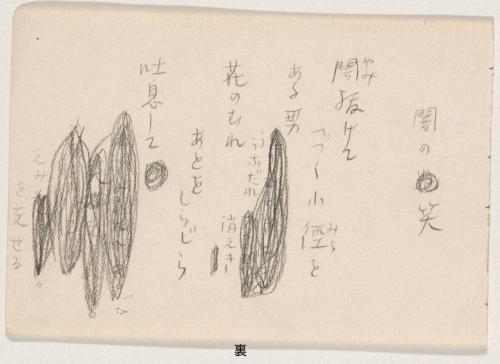 闇の笑
闇抜けて
やみ
つゞく小径を
みち
ある男
うなだれ
消え
花のむれ
あとを
しらじら
吐息して
えみ
を見せる。
裏